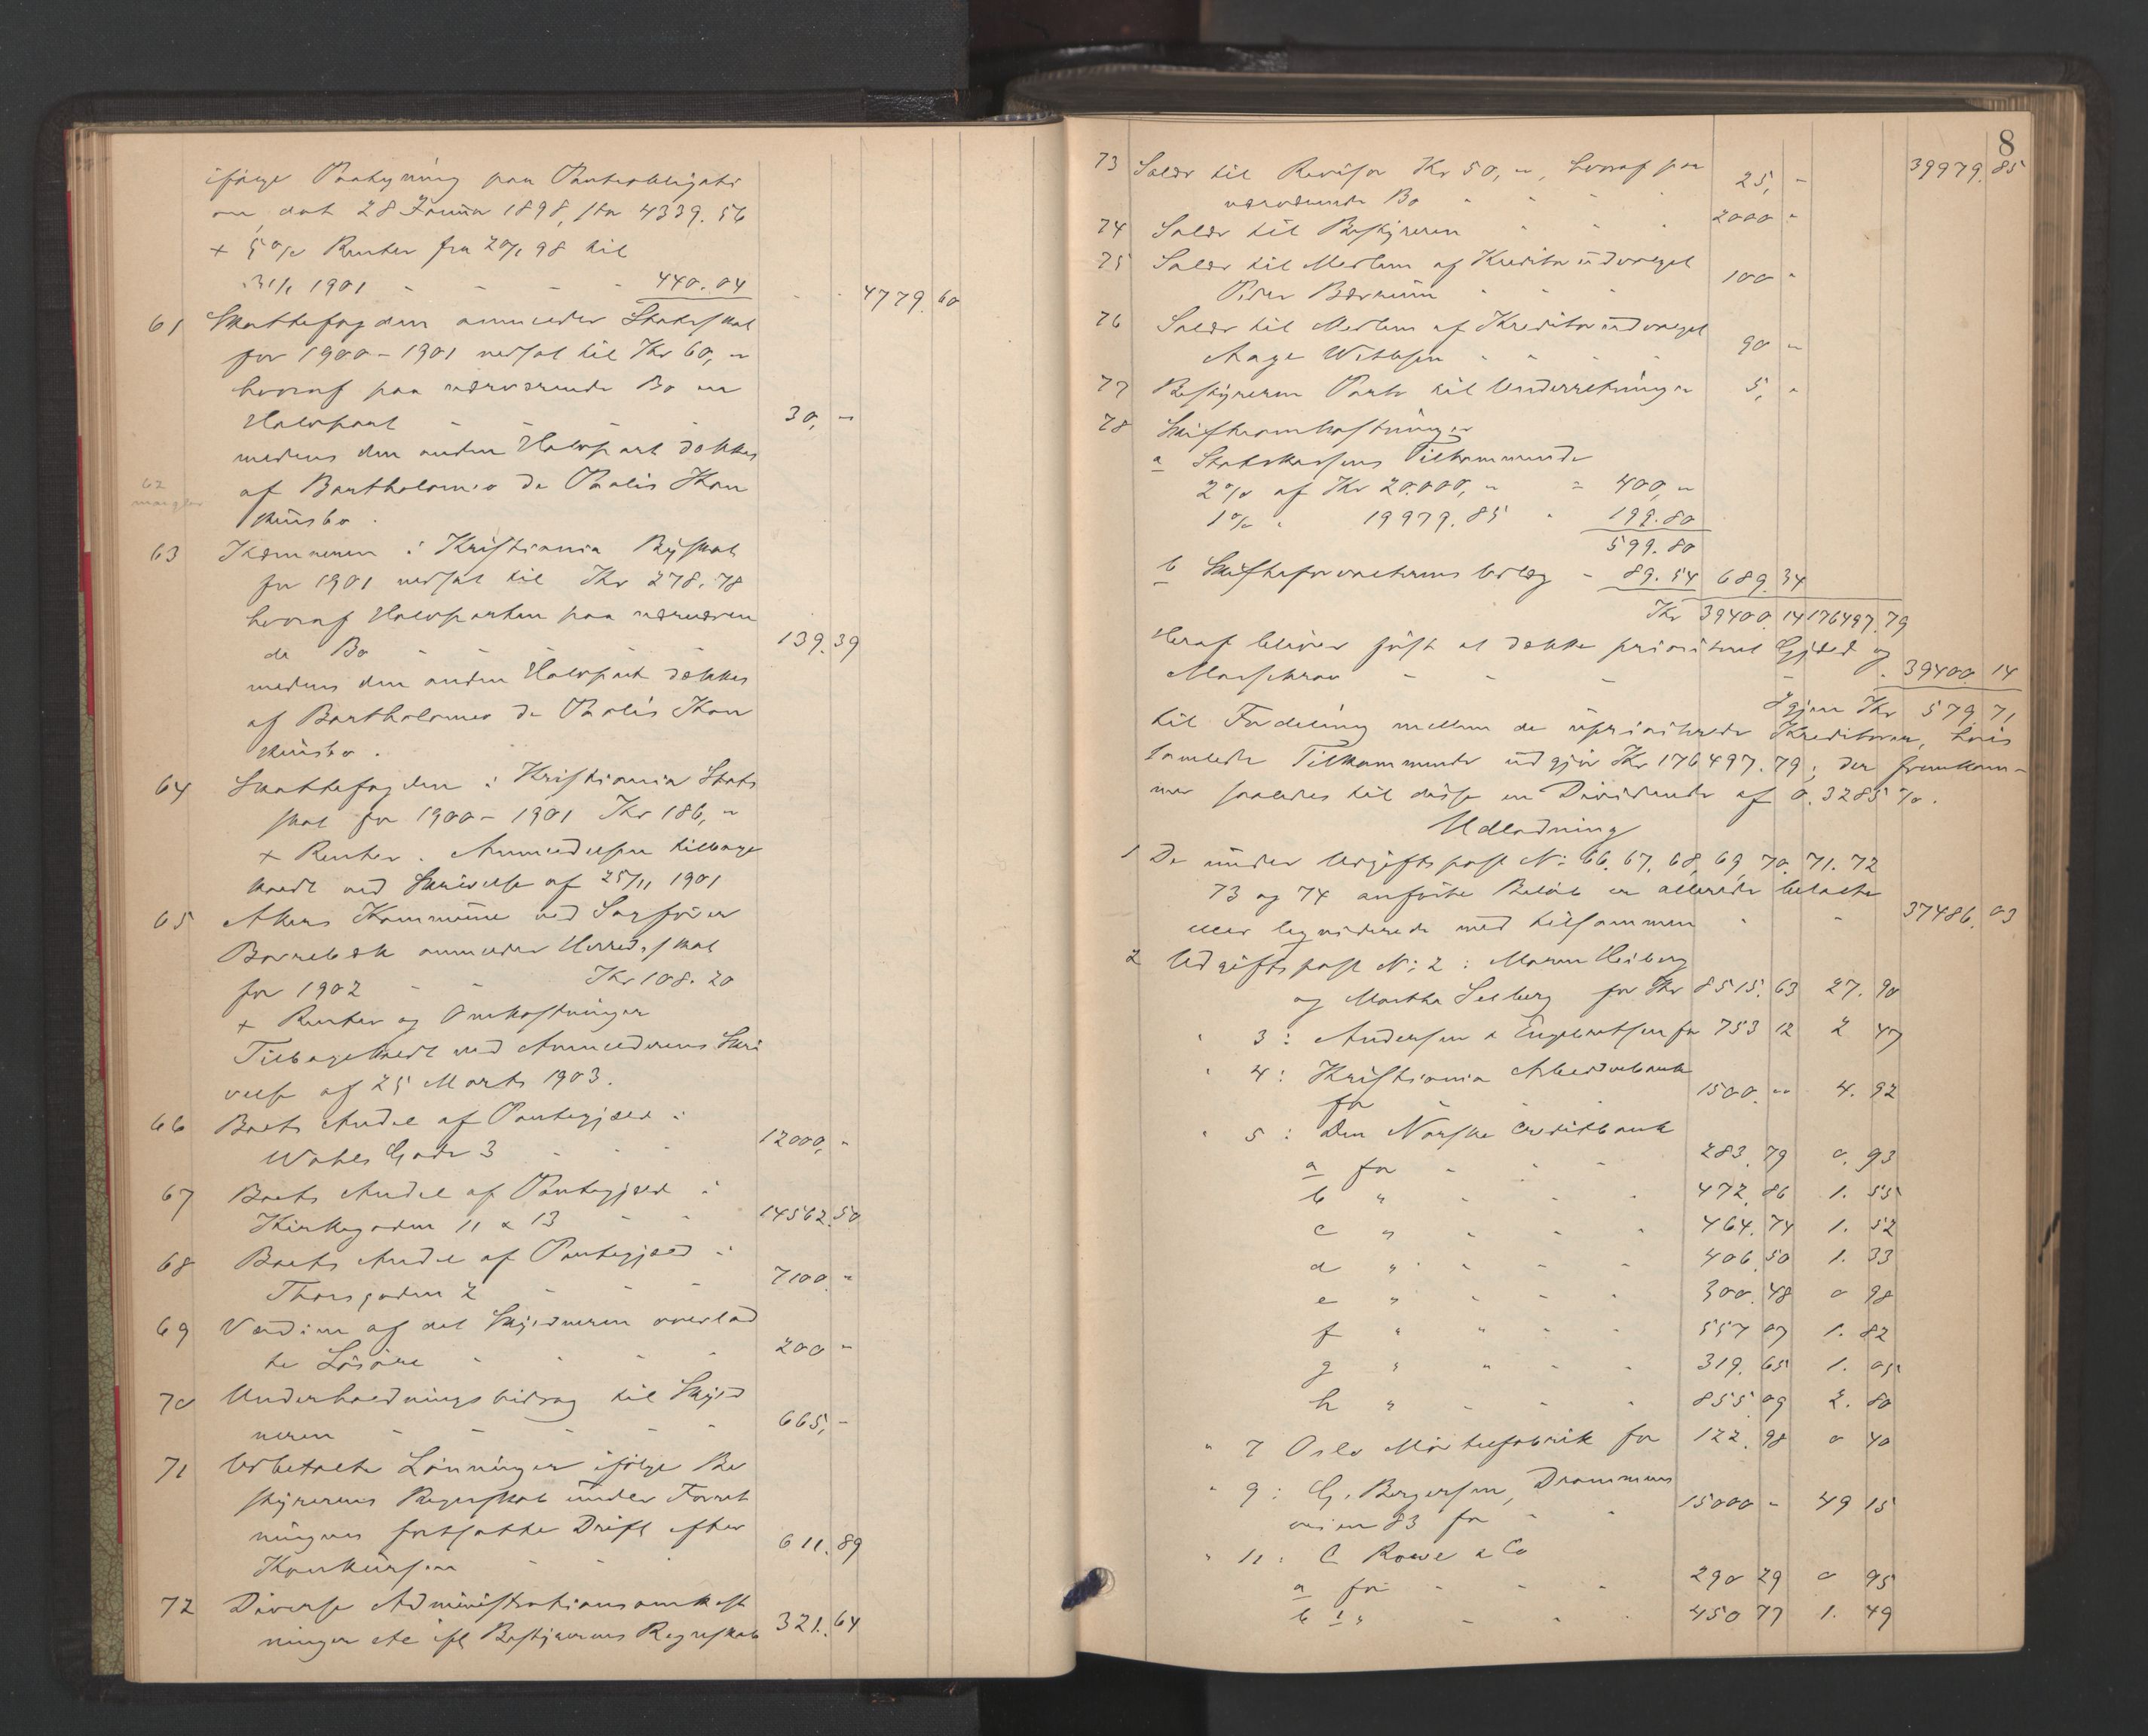 ifølge Paategning paa Panteobligati
on, dat 28 Januar 1898, stor 4339.56
+ 5% Renter fra 20/1 98 til
31/1 1901 - - - 440.04 - - 4779.60
61 Skattefogden anmelder Statsskat
for 1900-1901 nedsat til Kr 60,-
hvoraf paa nærværende Bo en
Halvpart - - - 30,-
medens den anden Halvpart dækkes
af Bartholomeo de Paolis Kon
kursbo.
62
mangler
63 Kæmneren i Kristiania Byskat
for 1901 nedsat til Kr 278.78
hvoraf Halvparten paa nærværen
de Bo - - - - 139.39
medens den anden Halvpart dækkes
af Bartholomeo de Paolis Kon
kursbo.
64 Skattefogden i Kristiania Stats
skat for 1900-1901 Kr 186,-
+ Renter. Anmeldelsen tilbage
kaldt ved Skrivelse af 25/11 1901
65 Akers Kommune ved Sagfører
anmelder Herredsskat
for 1902 - - Kr 108.20
+ Renter og Omkostninger
Tilbagekaldt ved Anmelderens Skri
velse af 25 Marts 1903.
66 Boets Andel af Pantegjæld i
Gade 3 - - - 12000,-
67 Boets Andel af Pantegjæld i
Kirkegaden 11 & 13 - - 14562.50
68 Boets Andel af Pantegjæld i
Thorsgaden 2 - - - 7100.-
69 Værdien af det Skyldneren overlad
te Løsøre - - - - 200 -
70 Underholdningsbidrag til Skyld
neren - - - - 665,-
71 Udbetalte Lønninger ifølge Be
styrerens Regnskab under Forret
ningens fortsatte Drift efter
Konkursen - - - 611.89
72 Diverse Administrationsomkost
ninger etc ifl Bestyrerens Regnskab 321.64
8
39979.85
73 Salær til Revisor Kr 50,-, hvoraf paa
nærværende Bo - - - 25,-
74 Salær til Bestyreren - - - 2000 -
75 Salær til Medlem af Kreditorudvalget
Peder - - - 100 -
76 Salær til Medlem af Kreditorudvalget
Aage - - - 90 -
77 Bestyreren Porto til Underretninger 5,-
78 Skifteomkostninger
a Statskassens Tilkommende
2% af Kr 20.000,- - 400,-
1% " 19979.85 - 199.80
599.80
b Skifteforvalterens Udlæg - 89.54 689.34
Kr 39400.14 176497.79
Heraf bliver først at dække prioriteret Gjæld og
Massekrav - - - - 39400.14
Igjen Kr 579.71
til Fordeling mellem de uprioriterede Kreditorer, hvis
samlede Tilkommende udgjør Kr 176497.79; der fremkom-
mer saaledes til disse en Dividende af 0.3285%.
Udlodning
1 De under Udgiftspost No: 66. 67. 68. 69. 70. 71. 72
73 og 74 anførte Beløb er allerede betalte
eller liqviderede med tilsammen - - 37486.03
2 Udgiftspost No; 2: Maren Heiberg
og Martha Selberg for Kr 8515.63 27.90
" 3: Andersen & Engebretsen for 753 12 2 47
" 4: Kristiania Arbeiderbank
for - - - 1500.- 4.92
" 5: Den Norske Creditbank
a for - - - 283.79 0.93
b " - - - 472.86 1.55
c " - - - 464.74 1.52
d " - - - 406.50 1.33
e " - - - 300.48 0 98
f " - - - 557 07 1.82
g " - - - 319.65 1.05
h " - - - 855.09 2.80
" 7 Oslo Mørtelfabrik for 122.98 0 40
" 9: G. Bergersen, Drammens
veien 83 for - - 15000 - 49 15
" 11: C Rowe & Co
a for - - - 290 29 0 95
b " - - - 450 77 1.49